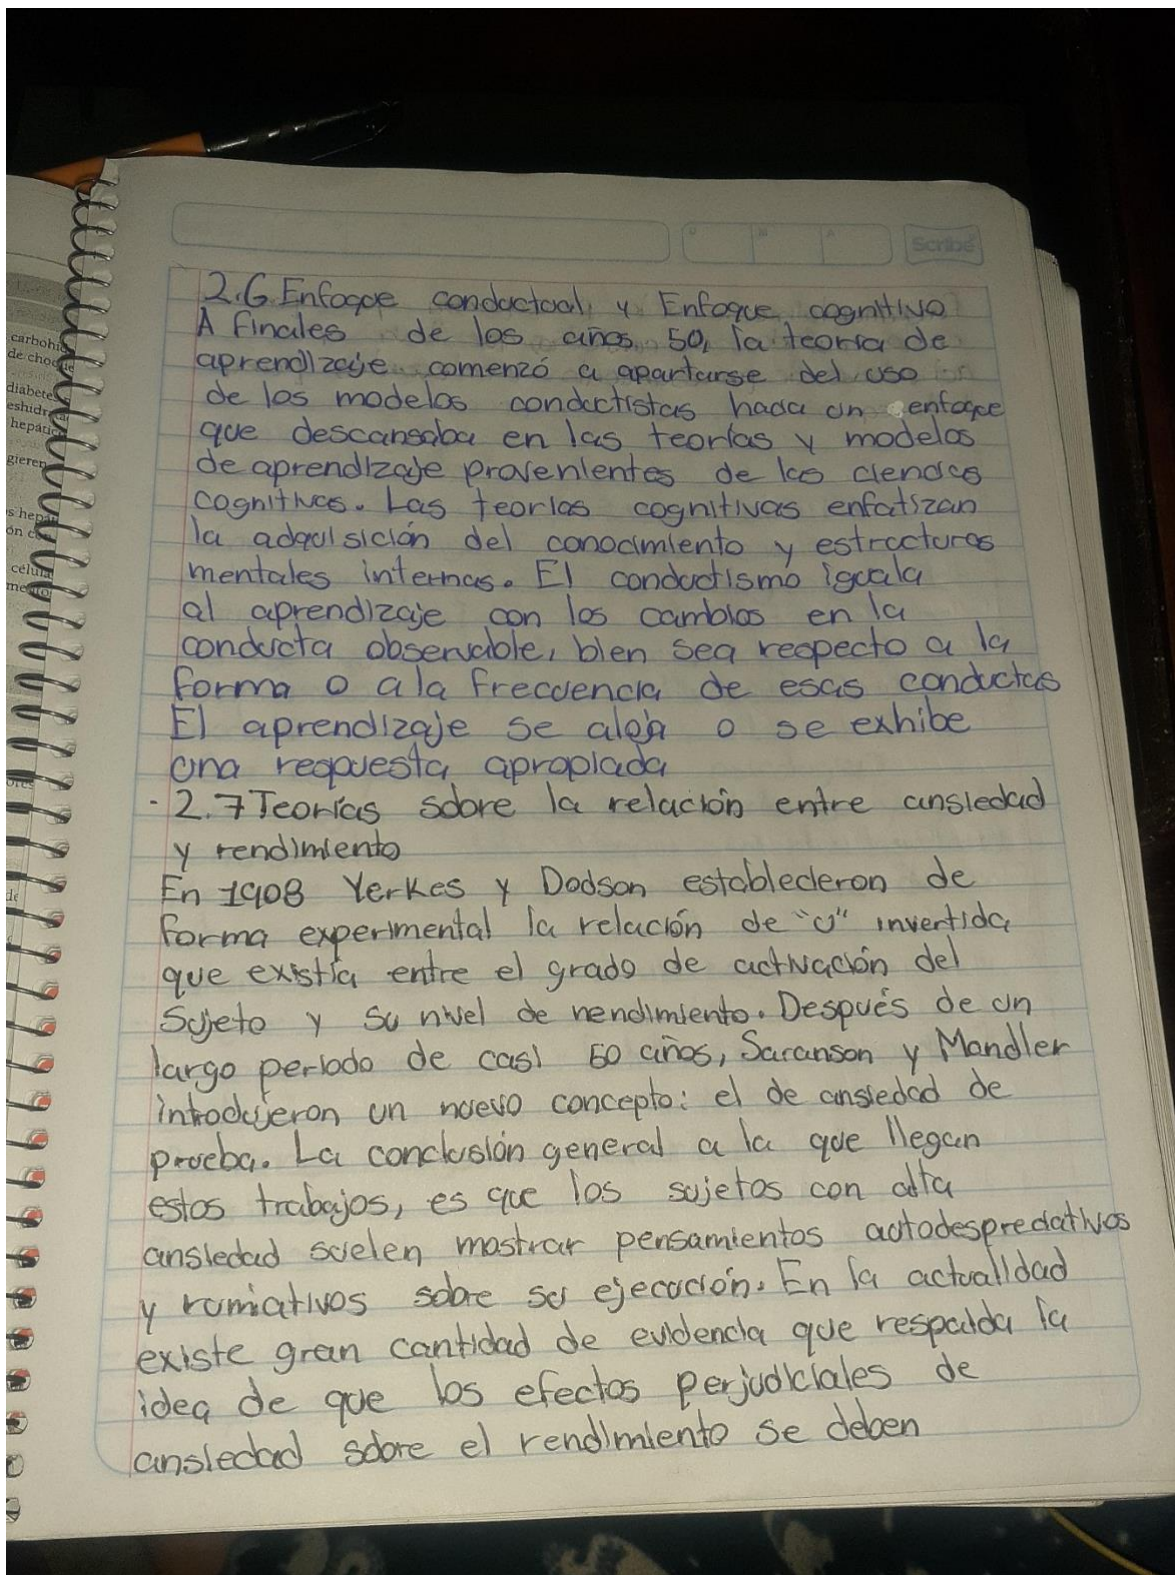 Scribe
2.6 Enfoque conductual y Enfoque cognitivo
A finales de los años 50, la teoría de
aprendizaje comenzó a apartarse del uso
de los modelos conductistas hacia un enfoque
que descansaba en las teorías y modelos
de aprendizaje provenientes de las ciencias
cognitivas. Las teorías cognitivas enfatizan
la adquisición del conocimiento y estructuras
mentales internas. El conductismo iguala
al aprendizaje con los cambios en la
conducta observable, bien sea respecto a la
forma o a la frecuencia de esas conductas
El aprendizaje se aloja o se exhibe
una respuesta apropiada
· 2.7 Teorías sobre la relación entre ansiedad
y rendimiento
En 1908 Yerkes y Dodson establecieron de
forma experimental la relación de "U" invertida
que existía entre el grado de activación del
sujeto y su nivel de rendimiento. Después de un
largo periodo de casi 50 años, Saranson y Mandler
introdujeron un nuevo concepto: el de ansiedad de
prueba. La conclusión general a la que llegan
estos trabajos, es que los sujetos con alta
ansiedad suelen mostrar pensamientos autodespreciativos
y rumiativos sobre su ejecución. En la actualidad
existe gran cantidad de evidencia que respalda la
idea de que los efectos perjudiciales de
ansiedad sobre el rendimiento se deben
carbohid
de cho
diabete
eshidra
hepátic
gieren
s hep
ón c
célula